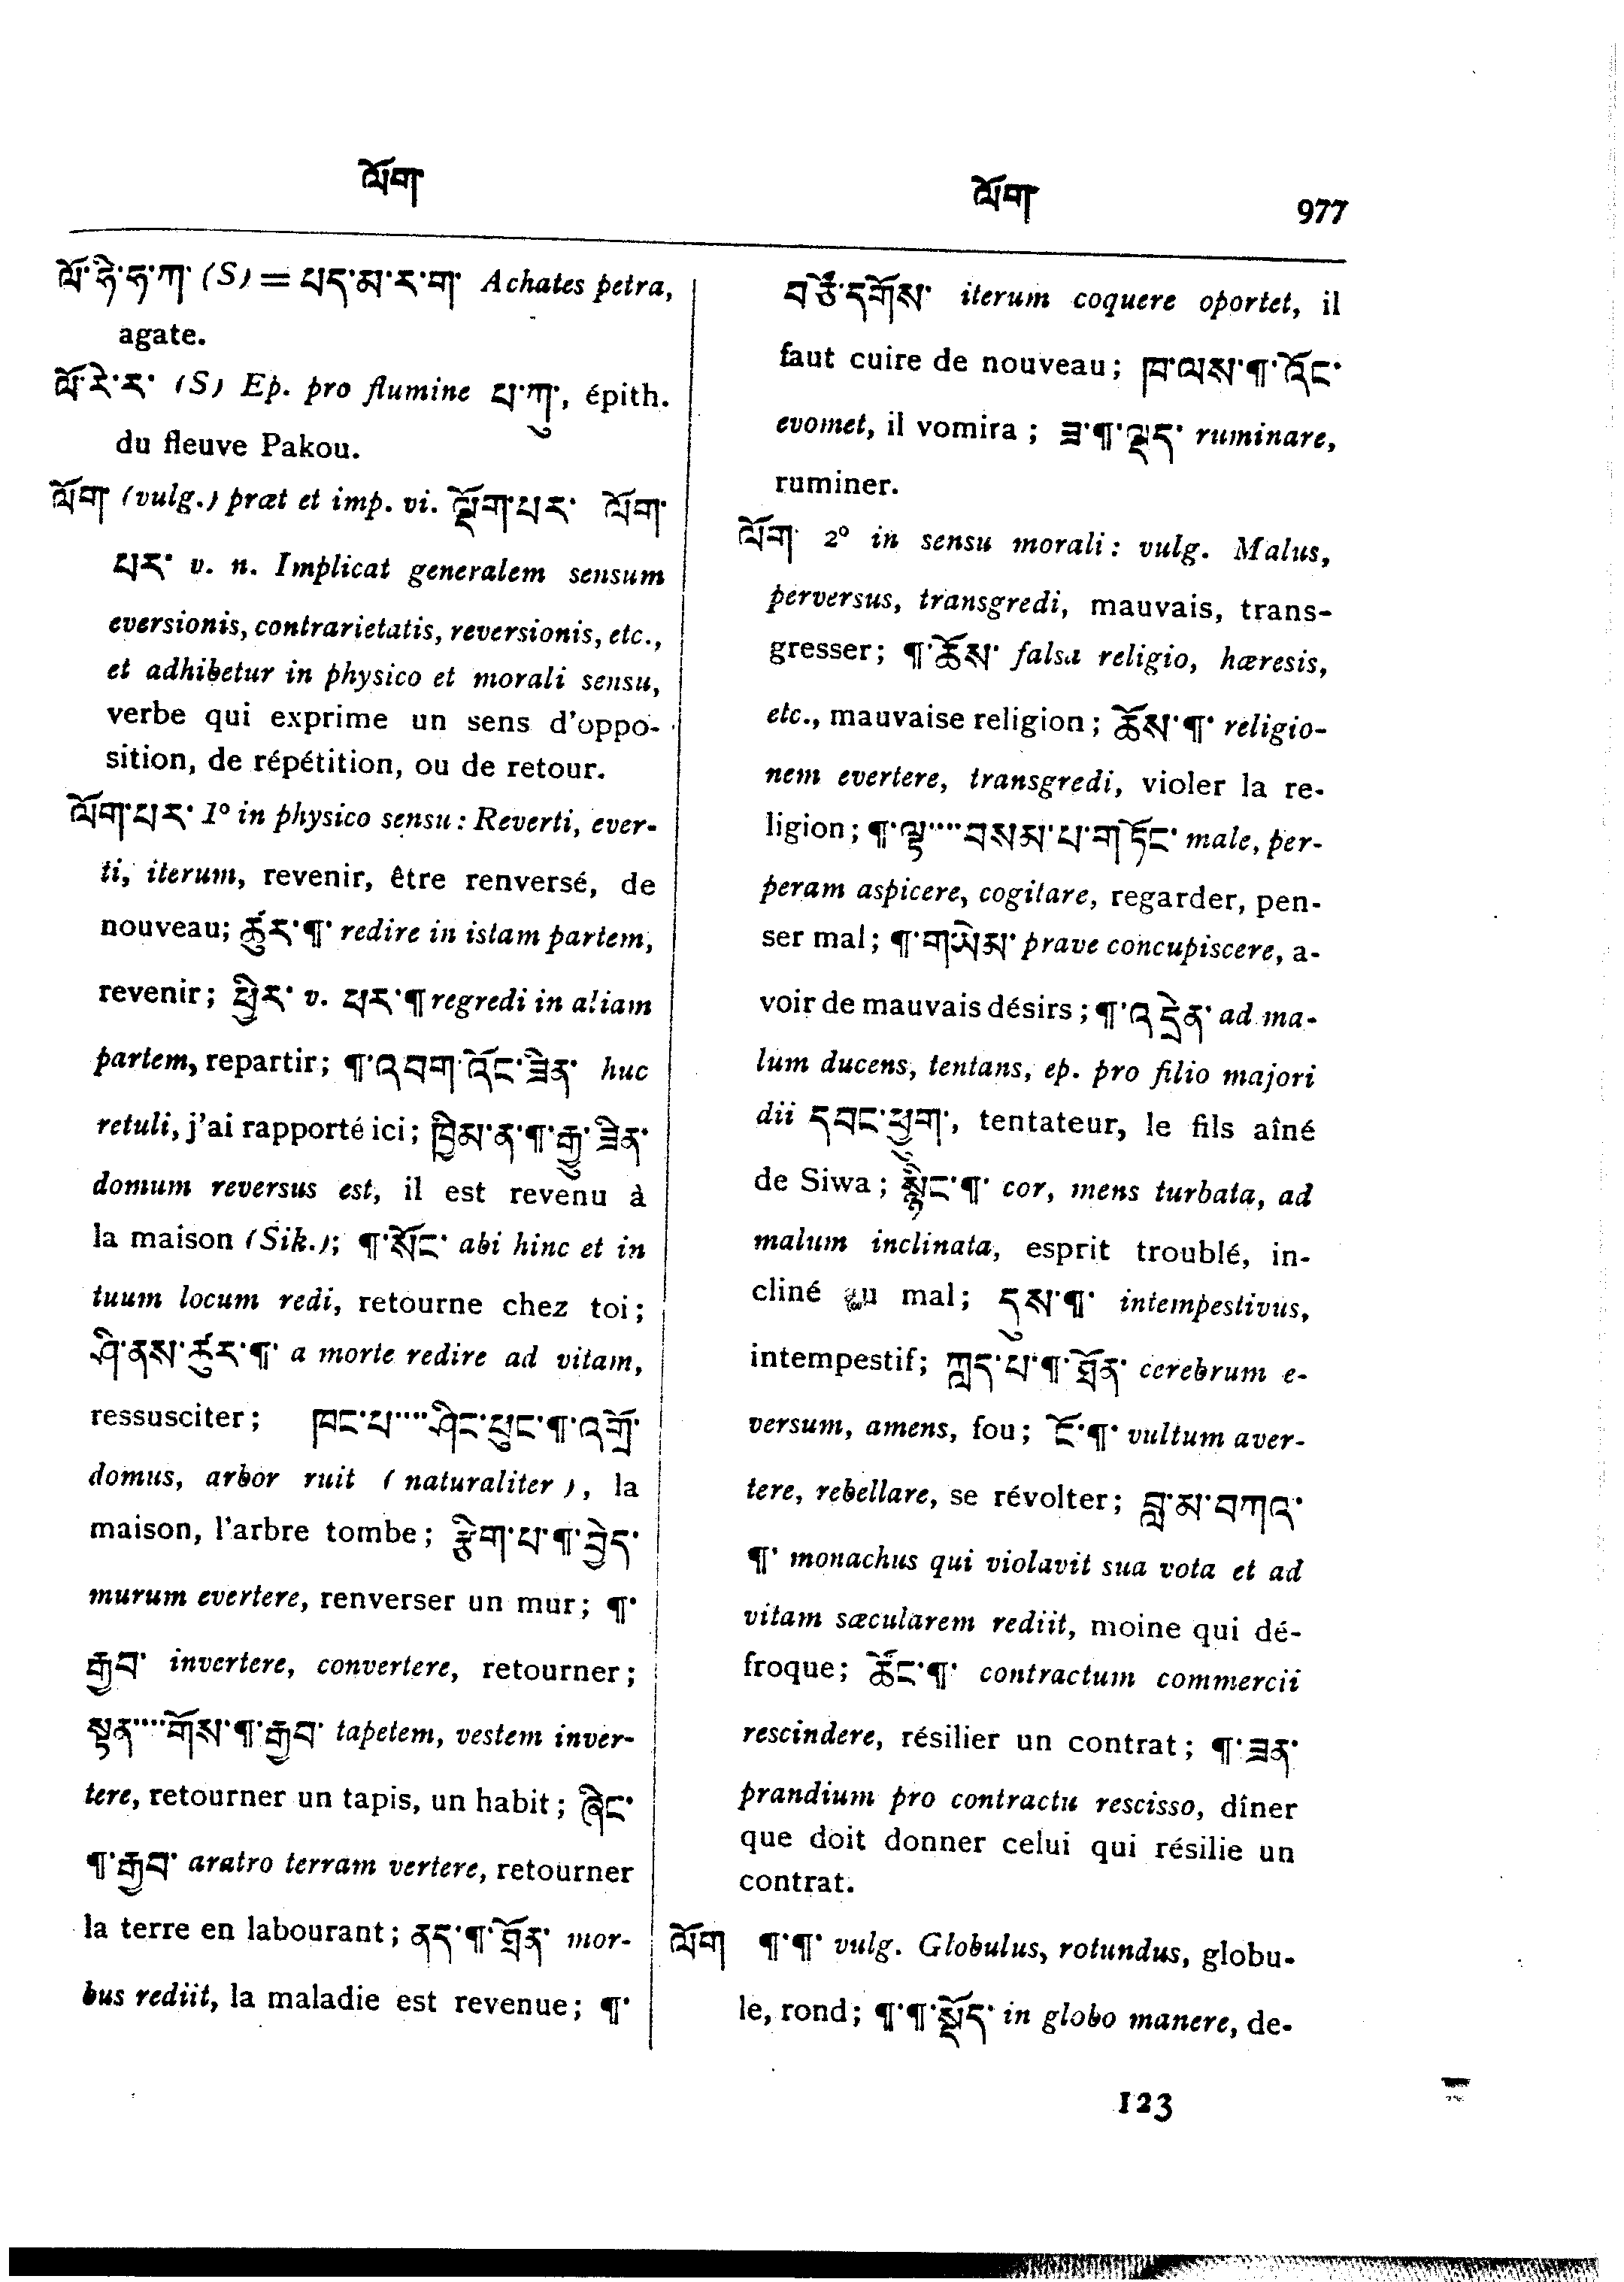 ལོག
ལོག
977
ལོ་ཧི་ཧ་ཀ་ (S) = པད་མ་ར་ག་ Achates petra,
agate.
ལོ་རེ་ར་ (S) Ep. pro flumine པ་ཀུ་, épith.
du fleuve Pakou.
ལོག (vulg.) præt et imp. vi. ལྡོག་པར་ ལོག་
པར་ v. n. Implicat generalem sensum
eversionis, contrarietatis, reversionis, etc.,
et adhibetur in physico et morali sensu,
verbe qui exprime un sens d'oppo-
sition, de répétition, ou de retour.
ལོག་པར་ 1° in physico sensu: Reverti, ever-
ti, iterum, revenir, être renversé, de
nouveau; ཚུར་¶་ redire in istam partem,
revenir; ཕྱིར་ v. ཕར་¶ regredi in aliam
partem, repartir; ¶་འབག་འོང་ཟིན་ huc
retuli, j'ai rapporté ici; ཁྱིམ་ན་¶་རྒྱུ་ཟིན་
domum reversus est, il est revenu à
la maison (Sik.); ¶་སོང་ abi hinc et in
tuum locum redi, retourne chez toi;
ཤི་ནས་ཚུར་¶་ a morte redire ad vitam,
ressusciter; ཁང་པ་···ཤིང་ཕུང་¶་འགྲོ་
domus, arbor ruit (naturaliter), la
maison, l'arbre tombe; རྩིག་པ་¶་བྱེད་
murum evertere, renverser un mur; ¶་
རྒྱབ་ invertere, convertere, retourner;
སྟན་···གོས་¶་རྒྱབ་ tapetem, vestem inver-
tere, retourner un tapis, un habit; ཞིང་
¶་རྒྱབ་ aratro terram vertere, retourner
la terre en labourant; ནད་¶་ཐོན་ mor-
bus rediit, la maladie est revenue; ¶་
བཙོ་དགོས་ iterum coquere oportet, il
faut cuire de nouveau; ཁ་ལས་¶་འོང་
evomet, il vomira; ཟ་¶་ལྡད་ ruminare,
ruminer.
ལོག 2° in sensu morali: vulg. Malus,
perversus, transgredi, mauvais, trans-
gresser; ¶་ཆོས་ falsa religio, hæresis,
etc., mauvaise religion; ཆོས་¶་ religio-
nem evertere, transgredi, violer la re-
ligion; ¶་ལྟ་···བསམ་པ་གཏོང་ male, per-
peram aspicere, cogitare, regarder, pen-
ser mal; ¶་གཡེམ་ prave concupiscere, a-
voir de mauvais désirs; ¶་འདྲེན་ ad ma-
lum ducens, tentans, ep. pro filio majori
dii དབང་ཕྱུག་, tentateur, le fils aîné
de Siwa; སྙིང་¶་ cor, mens turbata, ad
malum inclinata, esprit troublé, in-
cliné au mal; དུས་¶་ intempestivus,
intempestif; ཀླད་པ་¶་ཐོན་ cerebrum e-
versum, amens, fou; ངོ་¶་ vultum aver-
tere, rebellare, se révolter; བླ་མ་བཀའ་
¶་ monachus qui violavit sua vota et ad
vitam sæcularem rediit, moine qui dé-
froque; ཚོང་¶་ contractum commercii
rescindere, résilier un contrat; ¶་ཟན་
prandium pro contractu rescisso, dîner
que doit donner celui qui résilie un
contrat.
ལོག ¶་¶་ vulg. Globulus, rotundus, globu-
le, rond; ¶་¶་སྡོད་ in globo manere, de-
123